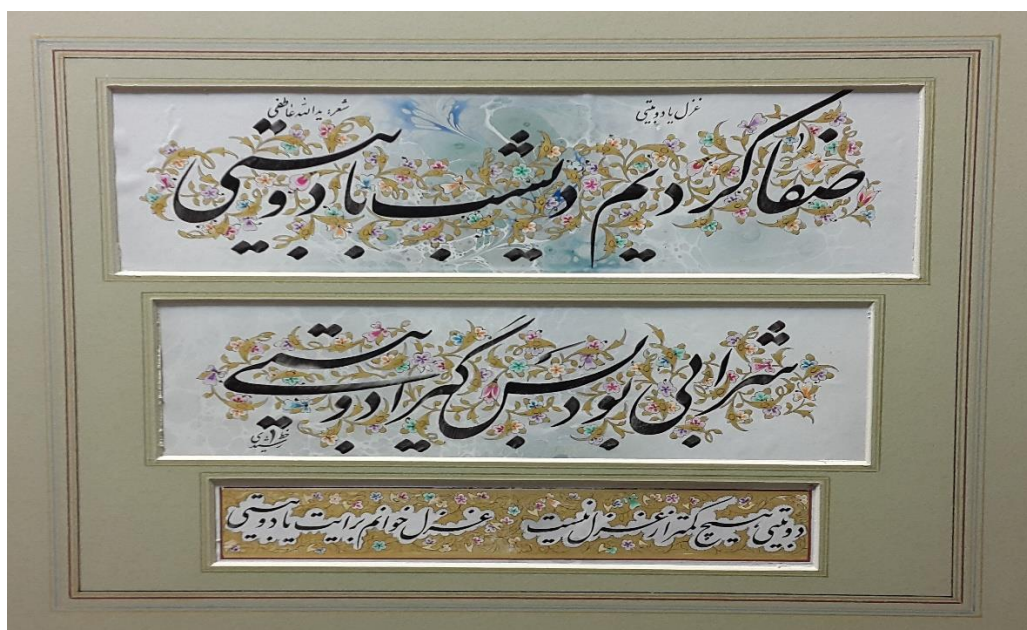 غزل یا دوبیتی
شعر: یدالله عاطفی
صفا کردیم دیشب با دوبیتی
شرابی بود بس گیرا دوبیتی
خط
دوبیتی هیچ کمتر از غزل نیست غزل خوانم برایت یا دوبیتی